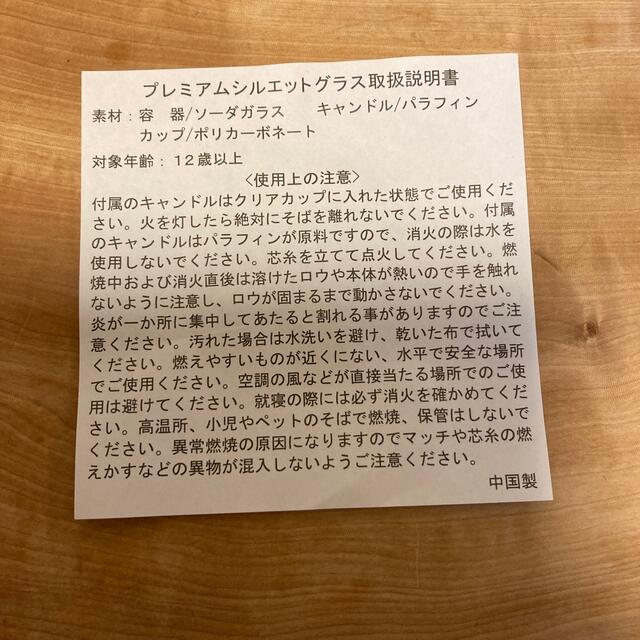 プレミアムシルエットグラス取扱説明書
素材：容　器/ソーダガラス　　キャンドル/パラフィン
カップ/ポリカーボネート
対象年齢：１２歳以上
＜使用上の注意＞
付属のキャンドルはクリアカップに入れた状態でご使用くだ
さい。火を灯したら絶対にそばを離れないでください。付属
のキャンドルはパラフィンが原料ですので、消火の際は水を
使用しないでください。芯糸を立てて点火してください。燃
焼中および消火直後は溶けたロウや本体が熱いので手を触れ
ないように注意し、ロウが固まるまで動かさないでください。
炎が一か所に集中してあたると割れる事がありますのでご注
意ください。汚れた場合は水洗いを避け、乾いた布で拭いて
ください。燃えやすいものが近くにない、水平で安全な場所
でご使用ください。空調の風などが直接当たる場所でのご使
用は避けてください。就寝の際には必ず消火を確かめてくだ
さい。高温所、小児やペットのそばで燃焼、保管はしないで
ください。異常燃焼の原因になりますのでマッチや芯糸の燃
えかすなどの異物が混入しないようご注意ください。
中国製